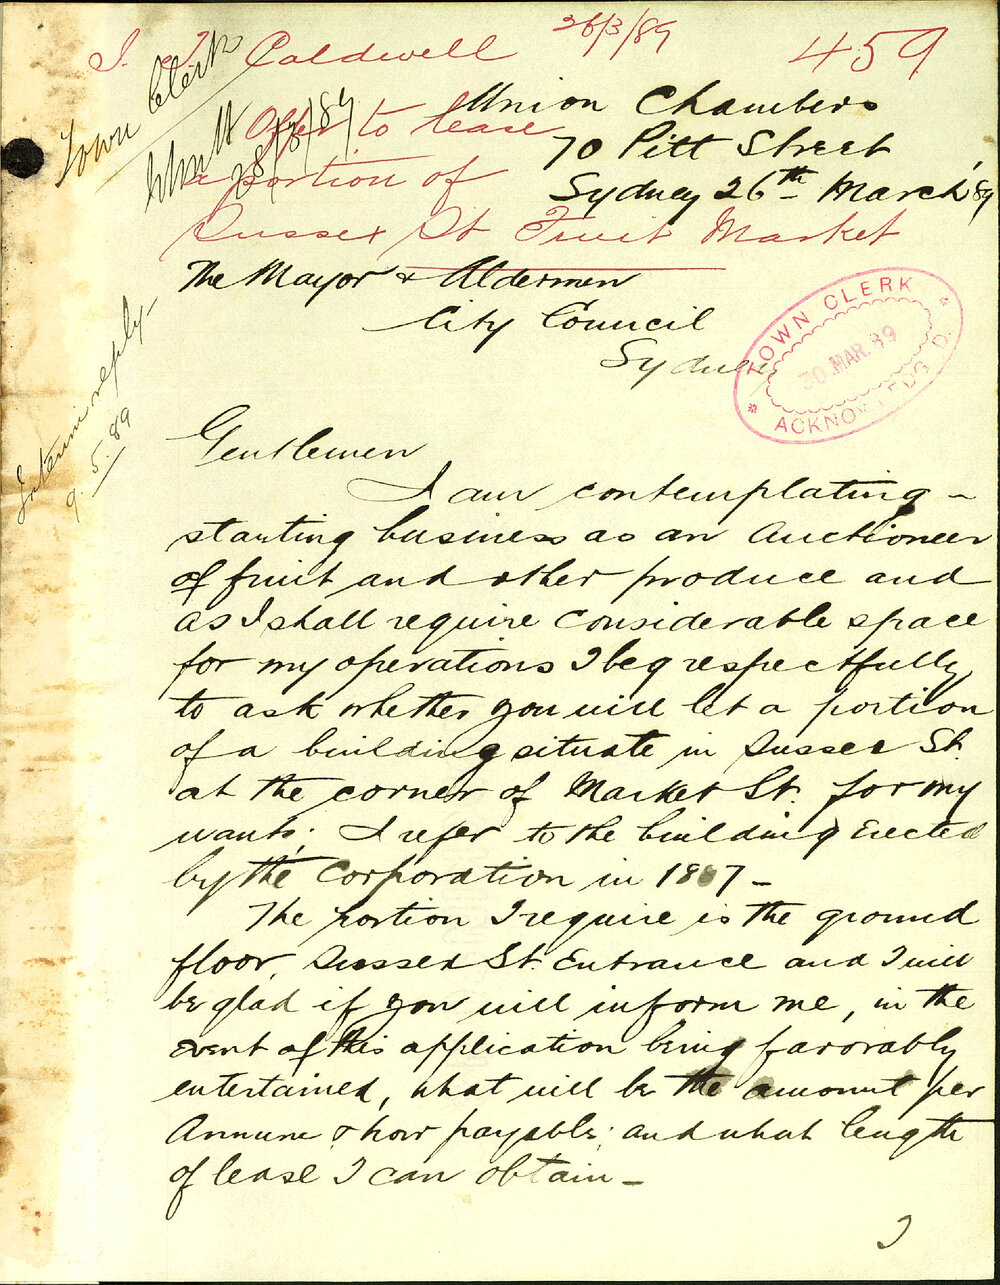 26/3/89
J. T. Caldwell
459
Offer to lease
a portion of
Sussex St Fruit Market
Town Clerk
28/3/89
Union Chambers
70 Pitt Street
Sydney 26th March, 89
The Mayor & Aldermen
City Council
Sydney
TOWN CLERK
30 MAR. 89
ACKNOWLEDGED.
Interim reply
9.5.89
Gentlemen
I am contemplating -
starting business as an Auctioneer
of fruit and other produce and
as I shall require considerable space
for my operations I beg respectfully
to ask whether you will let a portion
of a building situate in Sussex St.
at the corner of Market St. for my
wants; I refer to the building Erected
by the Corporation in 1887 -
The portion I require is the ground
floor, Sussex St. Entrance and I will
be glad if you will inform me, in the
event of this application being favorably
entertained, what will be the amount per
Annum & how payable; and what length
of lease I can obtain -
I